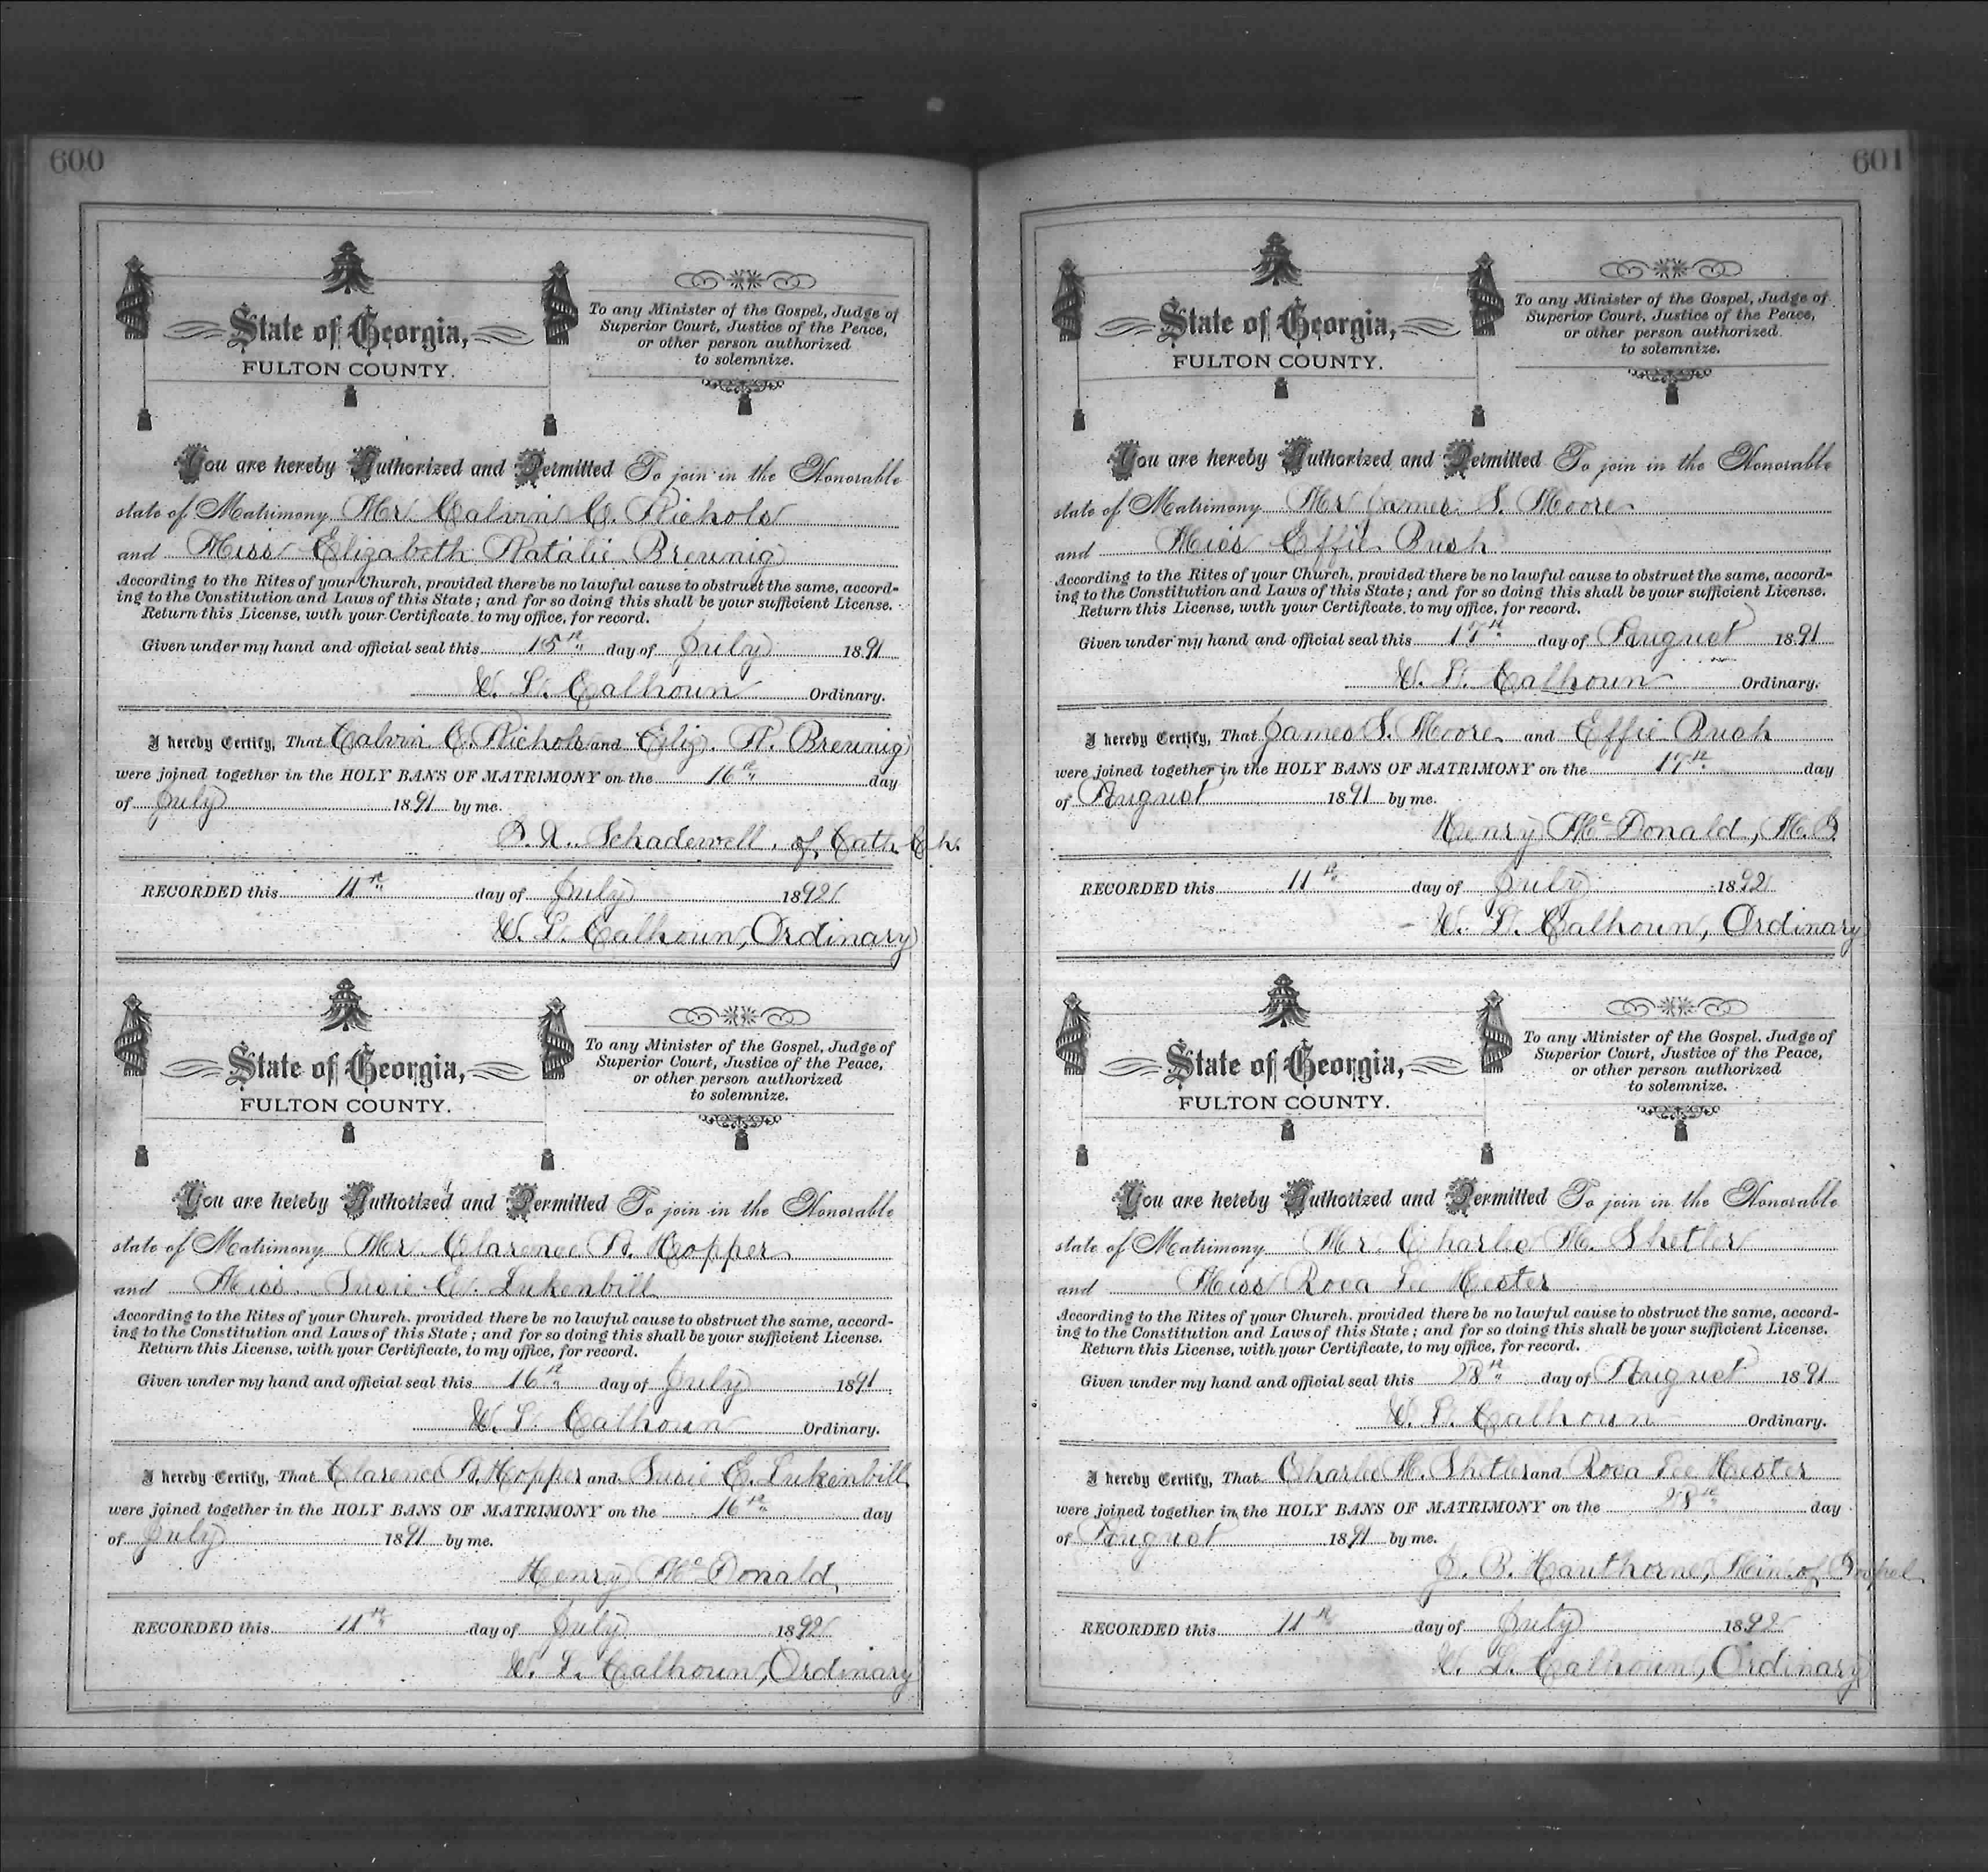 600
State of Georgia,
FULTON COUNTY.
To any Minister of the Gospel, Judge of
Superior Court, Justice of the Peace,
or other person authorized
to solemnize.
You are hereby Authorized and Permitted To join in the Honorable
state of Matrimony Mr Calvin C. Nichols
and Miss Elizabeth Natalie Breunig
According to the Rites of your Church, provided there be no lawful cause to obstruct the same, accord-
ing to the Constitution and Laws of this State; and for so doing this shall be your sufficient License.
Return this License, with your Certificate, to my office, for record.
Given under my hand and official seal this 15th day of July 1891
W. L. Calhoun Ordinary.
I hereby Certify, That Calvin C. Nichols and Eliz. N. Breunig
were joined together in the HOLY BANS OF MATRIMONY on the 16th day
of July 1891 by me.
Schadewell, of Cath. Ch.
RECORDED this 11th day of July 1892
W. L. Calhoun, Ordinary
State of Georgia,
FULTON COUNTY.
To any Minister of the Gospel, Judge of
Superior Court, Justice of the Peace,
or other person authorized
to solemnize.
You are hereby Authorized and Permitted To join in the Honorable
state of Matrimony Mr. Clarence B. Hopper
and Miss. Susie E. Lukenbill
According to the Rites of your Church, provided there be no lawful cause to obstruct the same, accord-
ing to the Constitution and Laws of this State; and for so doing this shall be your sufficient License.
Return this License, with your Certificate, to my office, for record.
Given under my hand and official seal this 16th day of July 1891
W. L. Calhoun Ordinary.
I hereby Certify, That Clarence B. Hopper and Susie E. Lukenbill
were joined together in the HOLY BANS OF MATRIMONY on the 16th day
of July 1891 by me.
Henry McDonald,
RECORDED this 11th day of July 1892
W. L. Calhoun, Ordinary
601
State of Georgia,
FULTON COUNTY.
To any Minister of the Gospel, Judge of
Superior Court, Justice of the Peace,
or other person authorized
to solemnize.
You are hereby Authorized and Permitted To join in the Honorable
state of Matrimony Mr James S. Moore
and Miss Effie Bush
According to the Rites of your Church, provided there be no lawful cause to obstruct the same, accord-
ing to the Constitution and Laws of this State; and for so doing this shall be your sufficient License.
Return this License, with your Certificate, to my office, for record.
Given under my hand and official seal this 17th day of August 1891
W. L. Calhoun Ordinary.
I hereby Certify, That James S. Moore and Effie Bush
were joined together in the HOLY BANS OF MATRIMONY on the 17th day
of August 1891 by me.
Henry McDonald, M. G.
RECORDED this 11th day of July 1892
W. L. Calhoun, Ordinary
State of Georgia,
FULTON COUNTY.
To any Minister of the Gospel, Judge of
Superior Court, Justice of the Peace,
or other person authorized
to solemnize.
You are hereby Authorized and Permitted To join in the Honorable
state of Matrimony Mr. Charles M. Shetler
and Miss Rosa Lee Hester
According to the Rites of your Church, provided there be no lawful cause to obstruct the same, accord-
ing to the Constitution and Laws of this State; and for so doing this shall be your sufficient License.
Return this License, with your Certificate, to my office, for record.
Given under my hand and official seal this 28th day of August 1891
W. L. Calhoun Ordinary.
I hereby Certify, That Charles M. Shetler and Rosa Lee Hester
were joined together in the HOLY BANS OF MATRIMONY on the 28th day
of August 1891 by me.
J. B. Hawthorne, Min. of Gospel
RECORDED this 11th day of July 1892
W. L. Calhoun, Ordinary